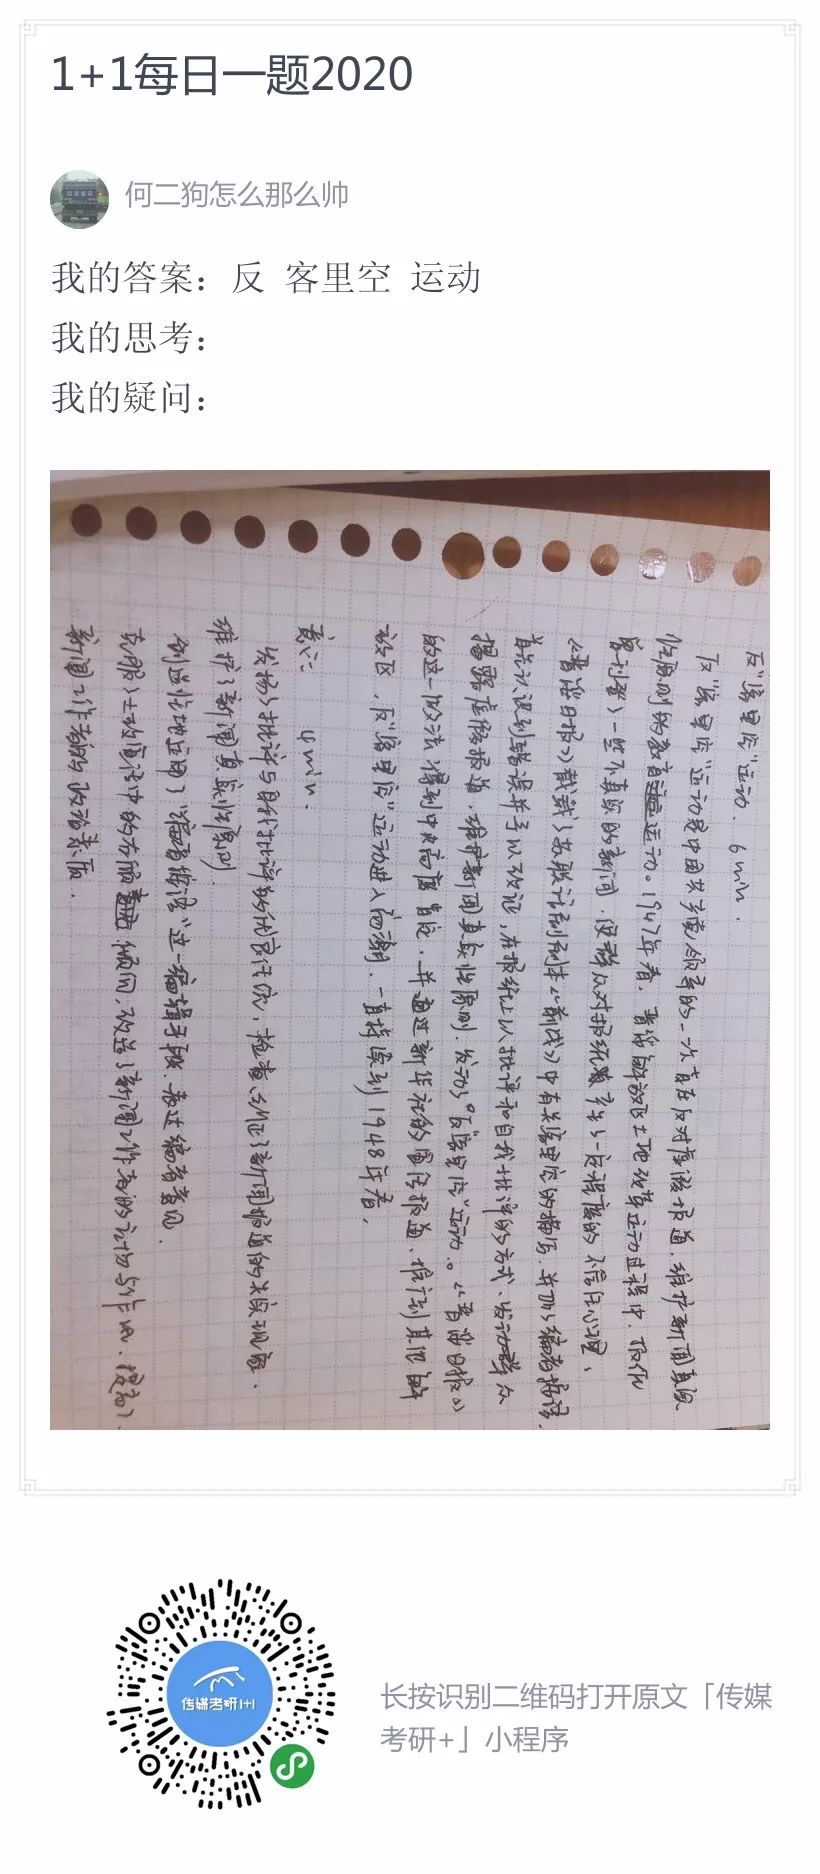 1+1每日一题2020
何二狗怎么那么帅
我的答案：反 客里空 运动
我的思考：
我的疑问：
反"客里空"运动. 6min.
反"客里空"运动是中国共产党领导的一次旨在反对虚假报道,维护新闻真实
性原则的教育运动。1947年春,晋绥解放区土地改革运动过程中,
客刊者)一些不真实的新闻,使群众对报纸产生了一定程度的不信任心理,
《晋绥日报》载了苏联话剧剧本《前线》中有关客里空的描写,并加了编者按语,
其认识到错误并予以改正,在报纸上以批评和自我批评的方式,发动群众
揭露虚假报道,维护新闻真实性原则,发动了"反客里空"运动。《晋绥日报》
的这一做法得到中央高度肯定,并通过新华社的宣传报道,推行到其他解
放区,反"客里空"运动进入高潮,一直持续到1948年春,
意义: 4min.
发扬了批评与自我批评的优良作风,检查纠正了新闻报道的失实现象.
维护了新闻真实性原则.
创造性地运用了"编者按语"这一编辑手段,表达编者意见.
克服土改宣传中的右倾倾向,改进了新闻工作者的文风与作风,提高了
新闻工作者的政治素质.
传媒考研1+1
长按识别二维码打开原文「传媒
考研+」小程序